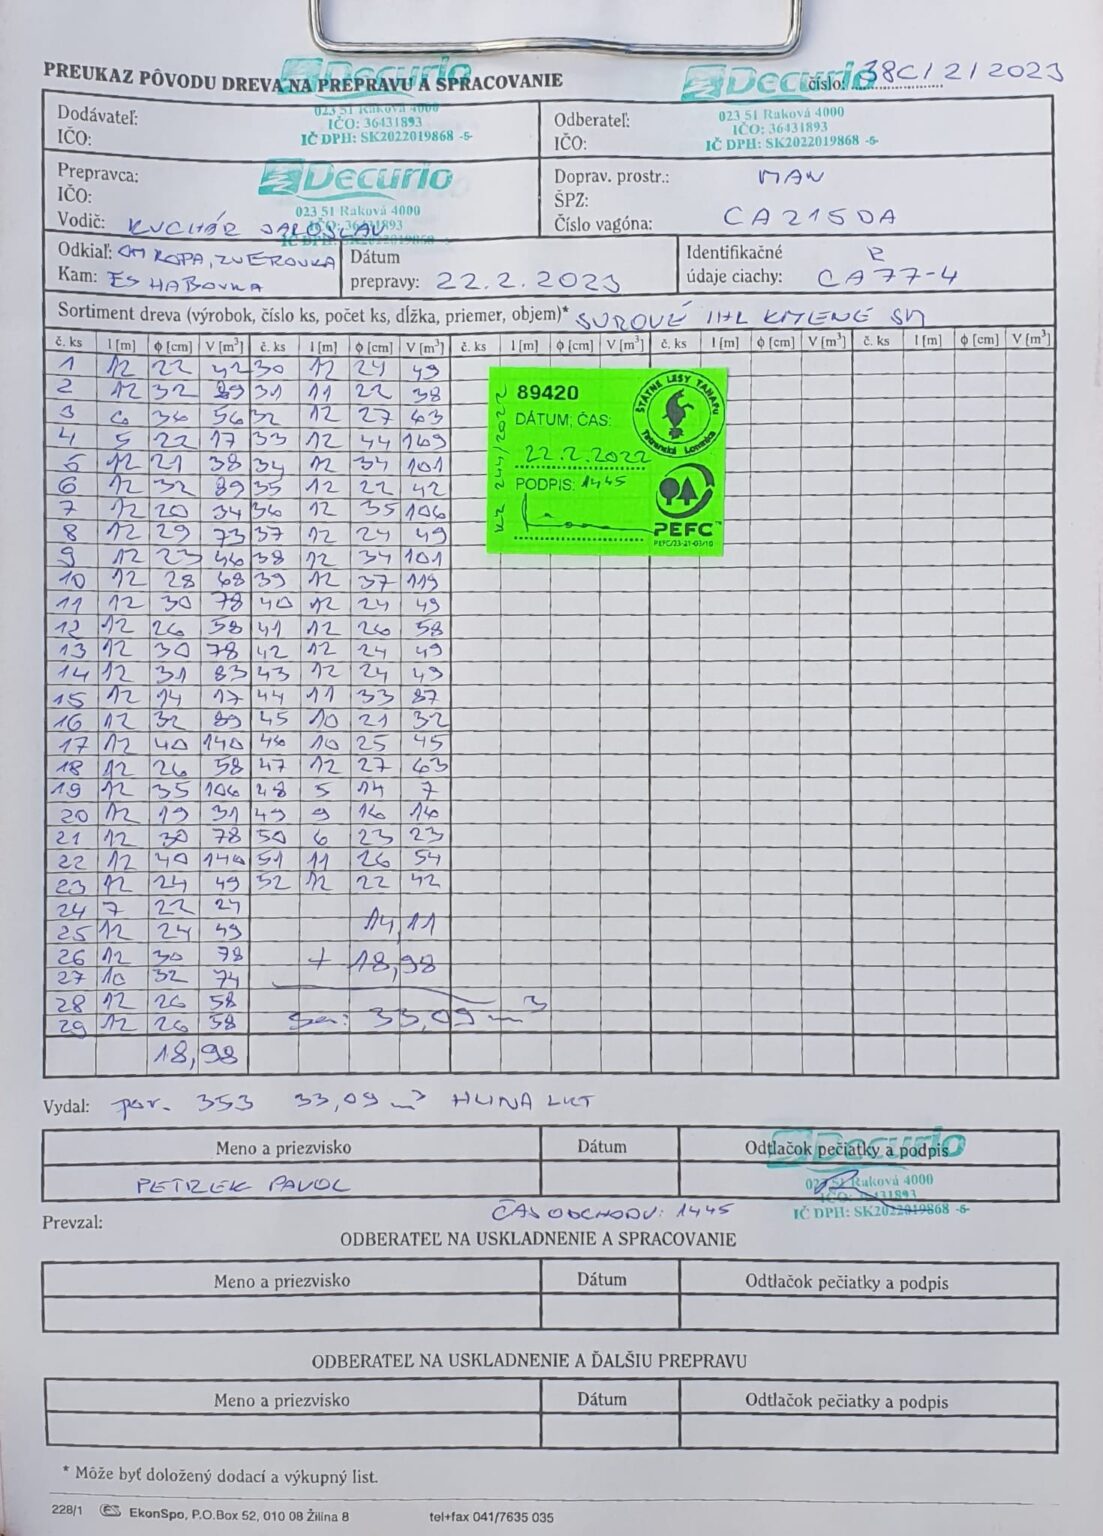 PREUKAZ PÔVODU DREVA NA PREPRAVU A SPRACOVANIE
Decurio
Decurio
číslo: 38C/2/2023
Dodávateľ:
IČO:
023 51 Raková 4000
IČO: 36431893
IČ DPH: SK2022019868 -5-
Odberateľ:
IČO:
023 51 Raková 4000
IČO: 36431893
IČ DPH: SK2022019868 -5-
Prepravca:
IČO:
Decurio
023 51 Raková 4000
Vodič: KUCHÁR JAROSLAV
Doprav. prostr.: MAN
ŠPZ:
Číslo vagóna: CA215DA
Odkiaľ: OM ROPA, ZVEROVKA
Kam: ES HABOVKA
Dátum
prepravy: 22.2.2023
Identifikačné
údaje ciachy: CA77-4
Sortiment dreva (výrobok, číslo ks, počet ks, dĺžka, priemer, objem)* SUROVÉ IHL KMENE SM
č. ks l [m] ϕ [cm] V [m³] č. ks l [m] ϕ [cm] V [m³] č. ks l [m] ϕ [cm] V [m³] č. ks l [m] ϕ [cm] V [m³] č. ks l [m] ϕ [cm] V [m³]
1 12 22 42 30 12 24 49
2 12 32 89 31 11 22 38
3 6 36 56 32 12 27 63
4 5 22 17 33 12 44 169
5 12 21 38 34 12 34 101
6 12 32 89 35 12 22 42
7 12 20 34 36 12 35 106
8 12 29 73 37 12 24 49
9 12 23 46 38 12 34 101
10 12 28 68 39 12 37 119
11 12 30 78 40 12 24 49
12 12 26 58 41 12 26 58
13 12 30 78 42 12 24 49
14 12 31 83 43 12 24 49
15 12 14 17 44 11 33 87
16 12 32 89 45 10 21 32
17 12 40 140 46 10 25 45
18 12 26 58 47 12 27 63
19 12 35 106 48 5 14 7
20 12 19 31 49 9 16 16
21 12 30 78 50 6 23 23
22 12 40 140 51 11 26 54
23 12 24 49 52 12 22 42
24 7 22 24
25 12 24 49 14,11
26 12 30 78 + 18,98
27 10 32 74
28 12 26 58
29 12 26 58 33,09 m³
18,98
89420
DÁTUM; ČAS:
22.2.2022
PODPIS: 1445
ŠTÁTNE LESY TANAPu
Tatranská Lomnica
PEFC™
PEFC/23-21-03/10
Vydal: por. 353 33,09 m³ HLINA LKT
Meno a priezvisko Dátum Odtlačok pečiatky a podpis
Decurio
PETREK PAVOL
023 51 Raková 4000
IČO: 36431893
IČ DPH: SK2022019868 -5-
ČAS ODCHODU: 1445
Prevzal:
ODBERATEĽ NA USKLADNENIE A SPRACOVANIE
Meno a priezvisko Dátum Odtlačok pečiatky a podpis
ODBERATEĽ NA USKLADNENIE A ĎALŠIU PREPRAVU
Meno a priezvisko Dátum Odtlačok pečiatky a podpis
* Môže byť doložený dodací a výkupný list.
228/1 ES EkonSpo, P.O.Box 52, 010 08 Žilina 8 tel+fax 041/7635 035